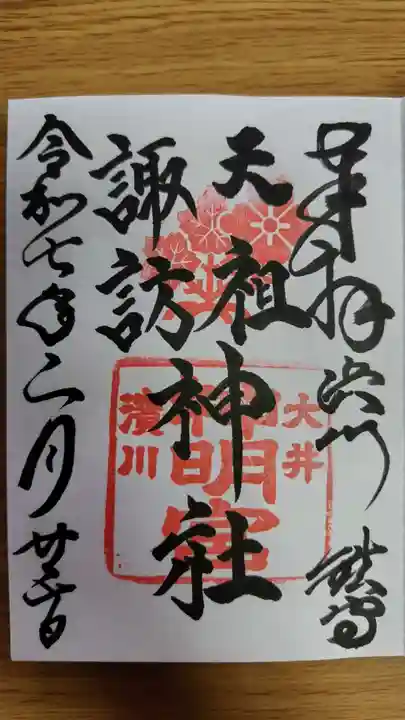 奉拝 浜川 鎮守
天祖
諏訪
神社
令和七年二月廿 日
大井
明宮
濱川